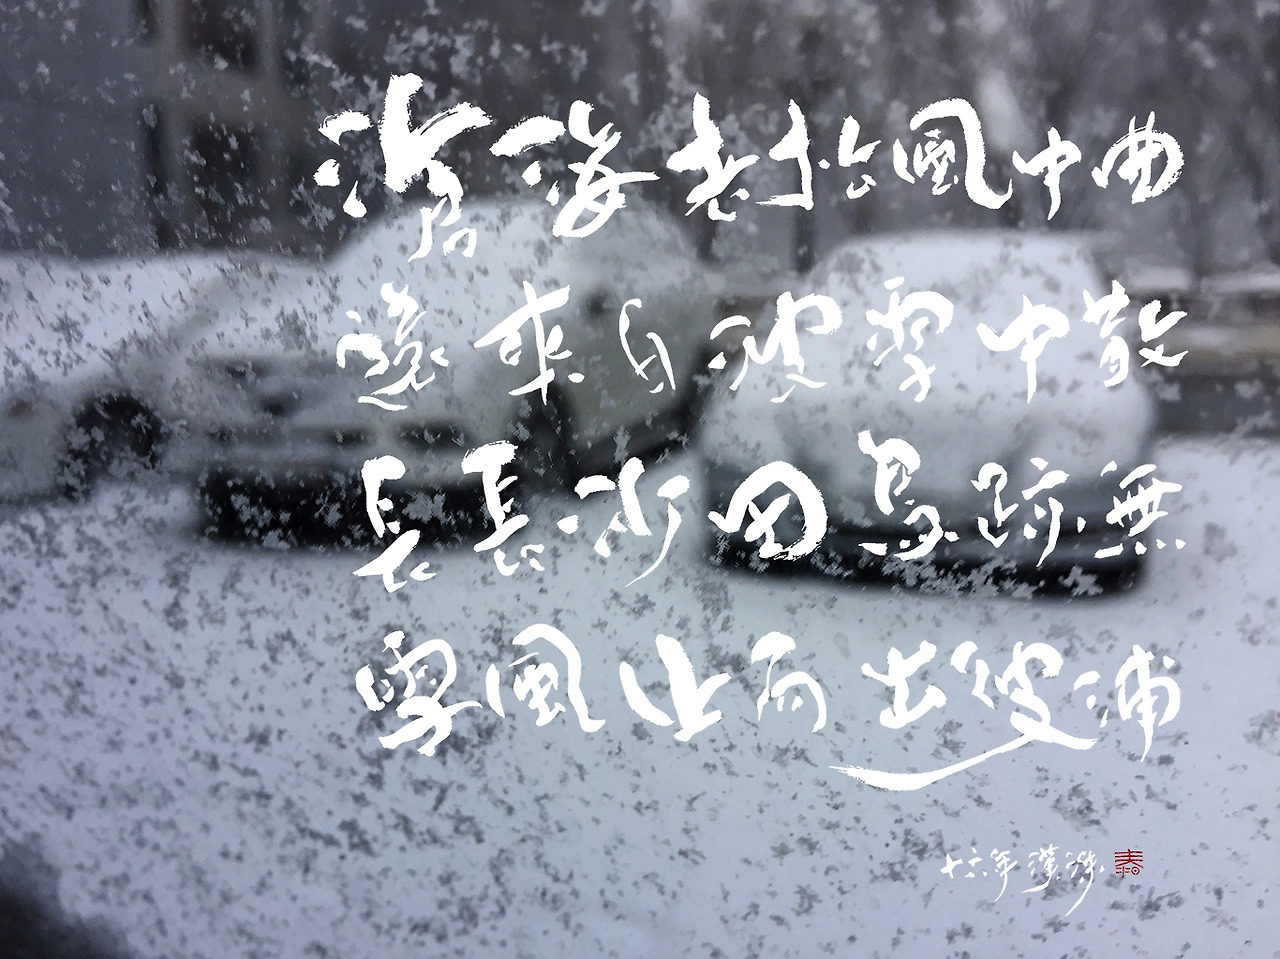 滄海老扵風中曲
遠來自彼雪中散
長長沙田鳥跡無
雪風止而出彼浦
十六年漢
春